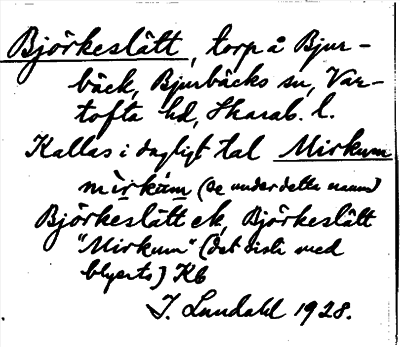 Björkeslätt, torp å Bjur-
bäck, Bjurbäcks sn, Var-
tofta hd, Skarab. l.
Kallas i dagligt tal Mirkum
mìrkùm (se under detta namn)
Björkeslätt ek, Björkeslätt
"Mirkum" (det sista med
blyerts) KB
J. Lundahl 1928.